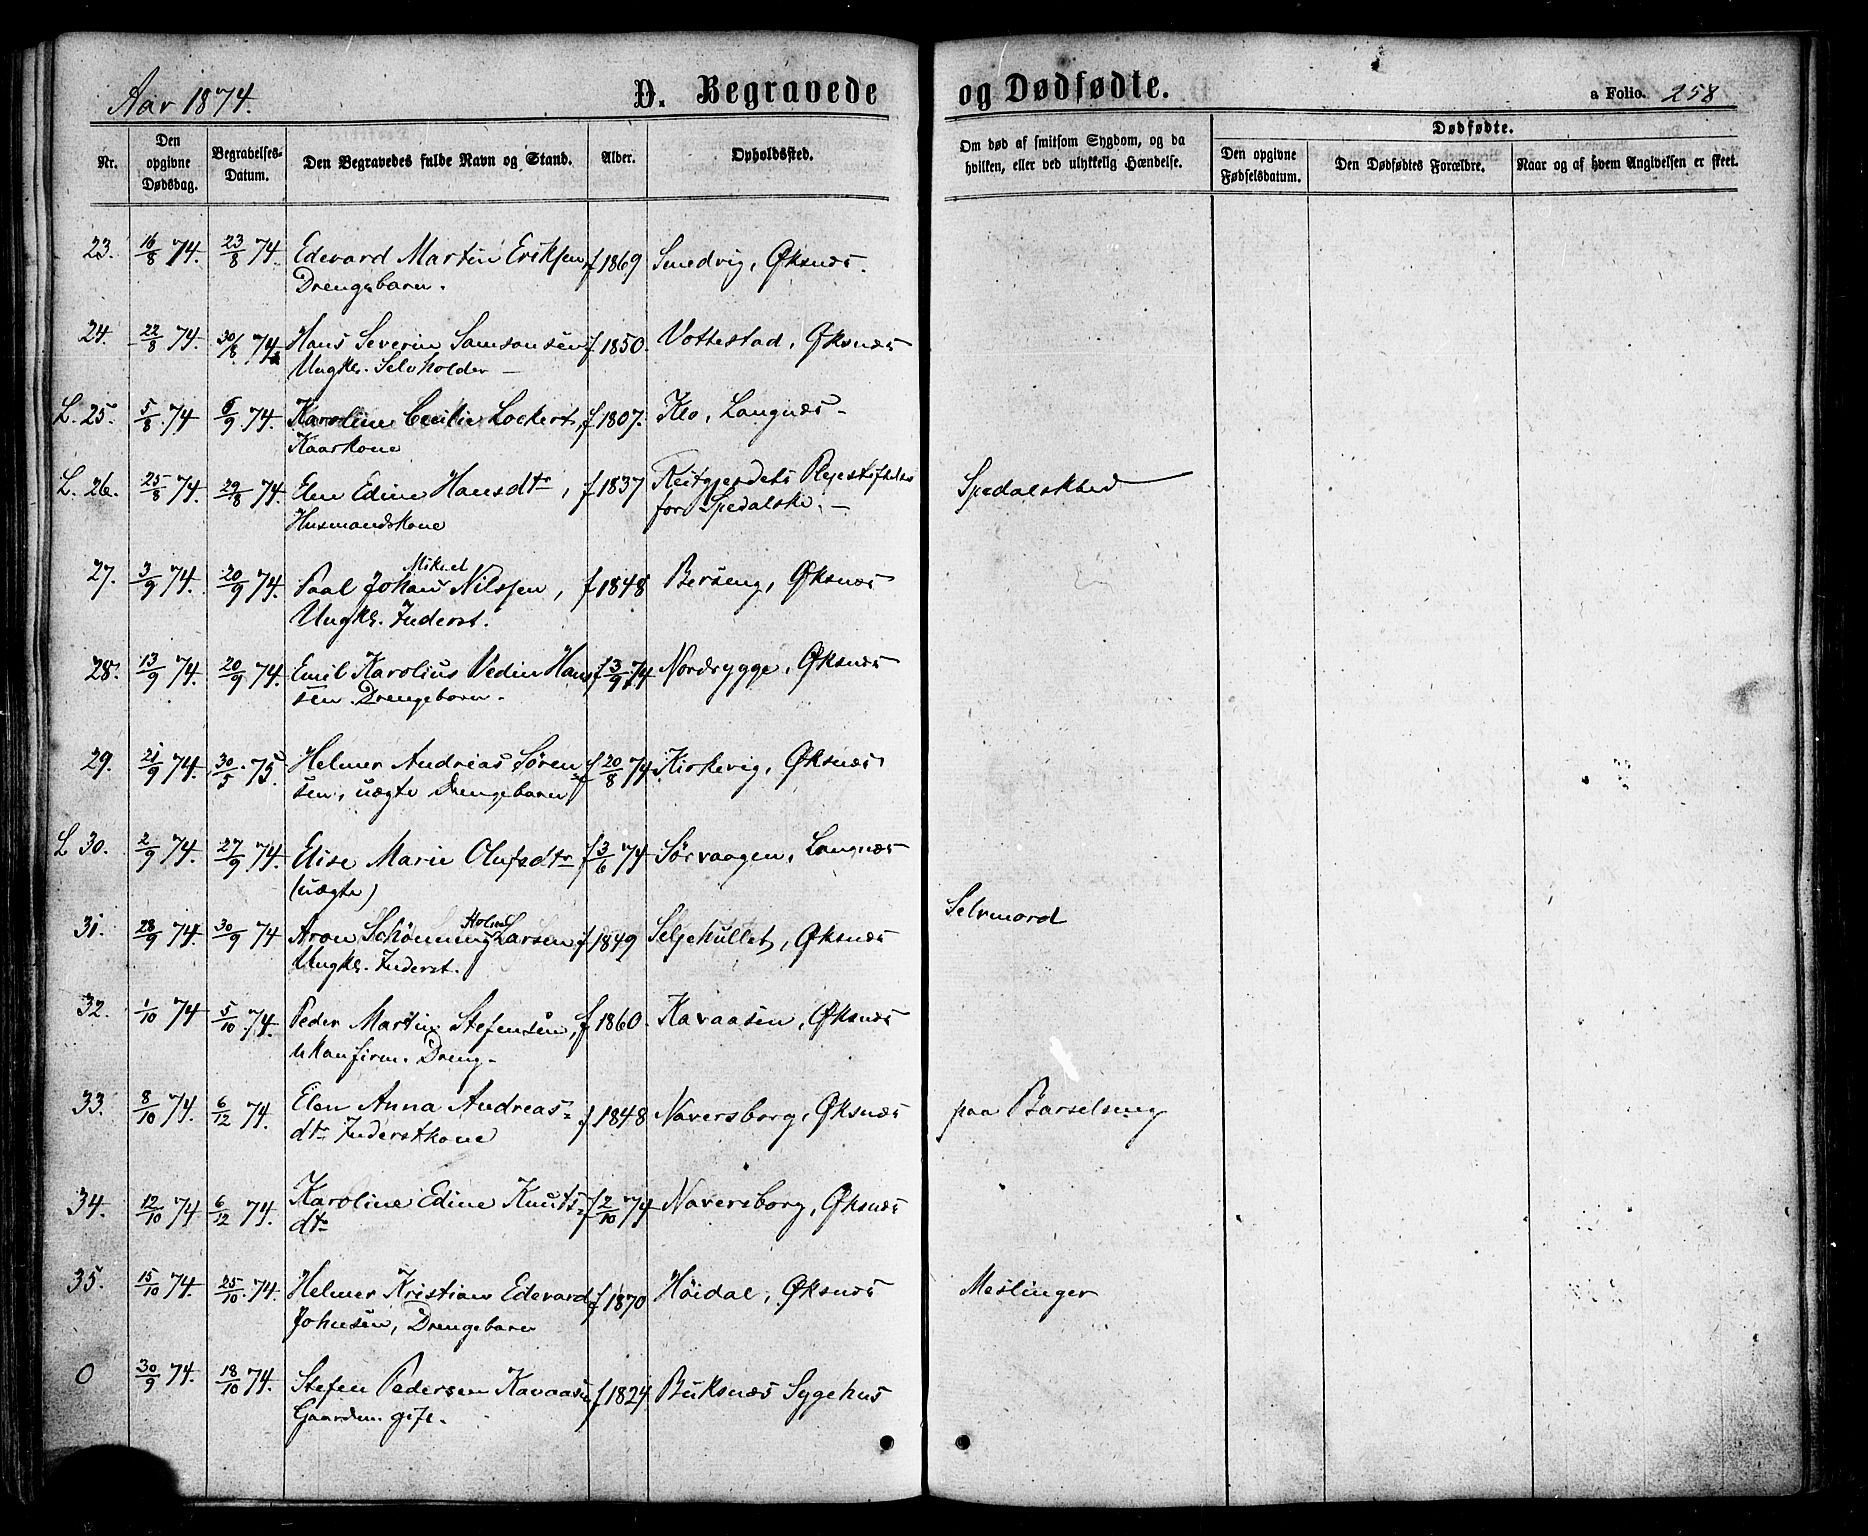 Aar 1874. D. Begravede og Dødfødte. a Folio. 258
Nr. Den opgivne Dødsdag. Begravelses-Datum. Den Begravedes fulde Navn og Stand. Alder. Opholdssted. Om død af smitsom Sygdom, og da hvilken, eller ved ulykkelig Hændelse. Dødfødte. Den opgivne Fødselsdatum. Den Dødfødtes Forældre. Naar og af hvem Angivelsen er skeet.
23. 16/8 74. 23/8 74. Edevard Martin Eriksen, f 1869 Smedvig, Øksnæs.
Drengebarn.
24. 22/8 74. 30/8 74. Hans Severin Samsonsen f 1850. Vottestad, Øksnæs
Ungkr. Selvholder –
L. 25. 5/8 74 6/9 74. Karoline Cecilie Lockert, f 1807. Klo, Langnæs –
Kaarkone
L. 26. 25/8 74. 29/8 74. Elen Edine Hansdtr, f 1837 Reitgjerdets Plejestiftelse Spedalskhed
Husmandskone for Spedalske. –
27. 3/9 74. 20/9 74. Paal Johan Mikael Nilssen, f 1848 Berseng, Øksnæs
Ungkr. Inderst.
28. 13/9 74. 20/9 74. Emil Karolius Vedin Han f 3/9 74 Nordrygge, Øksnæs
sen. Drengebarn.
29. 21/9 74. 30/5 75. Helmer Andreas Søren f 20/8 74 Kirkevig, Øksnæs
sen, uægte Drengebarn
L 30. 2/9 74. 27/9 74. Elise Marie Olufsdtr f 3/6 74 Sørvaagen, Langnæs
(uægte)
31. 28/9 74. 30/9 74 Aron Schönning Holm Larsen f 1849 Seljehullet, Øksnæs Selvmord
Ungkr. Inderst.
32. 1/10 74 5/10 74. Peder Martin Stefensen, f 1860. Kavaasen, Øksnæs
ukonfirm. Dreng.
33. 8/10 74. 6/12 74. Elen Anna Andreas= f 1848 Naversborg, Øksnæs paa Barselseng
dtr Inderstkone
34. 12/10 74 6/12 74. Karoline Edine Knuts= f 2/10 74 Naversborg, Øksnæs
dtr
35. 15/10 74 25/10 74. Helmer Kristian Edevard f 1870 Höidal, Øksnæs Meslinger
Johnsen, Drengebarn
0 30/9 74. 18/10 74. Stefen Pedersen Kavaasen f 1824. Buksnæs Sygehus
Gaardm. gift.